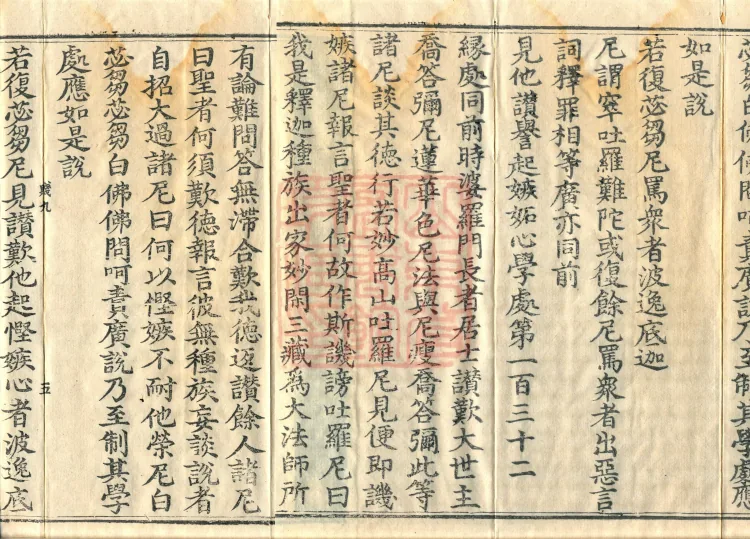 如是說
若復苾芻尼罵衆者波逸底迦
尼謂窣吐羅難陀或復餘尼罵衆者出惡言
詞釋罪相等廣亦同前
見他讃譽起嫉妬心學處第一百三十二
縁處同前時婆羅門長者居士讃歎大世主
喬答彌尼蓮華色尼法與尼瘦喬答彌此等
諸尼談其德行若妙高山吐羅尼見便即譏
嫉諸尼報言聖者何故作斯譏謗吐羅尼曰
我是釋迦種族出家妙閑三藏爲大法師所
有論難問答無滯合歎我德返讃餘人諸尼
曰聖者何須歎德報言彼無種族妄談說者
自招大過諸尼曰何以慳嫉不耐他榮尼白
苾芻苾芻白佛佛問呵責廣說乃至制其學
處應如是說
九
五
若復苾芻尼見讃歎他起慳嫉心者波逸底